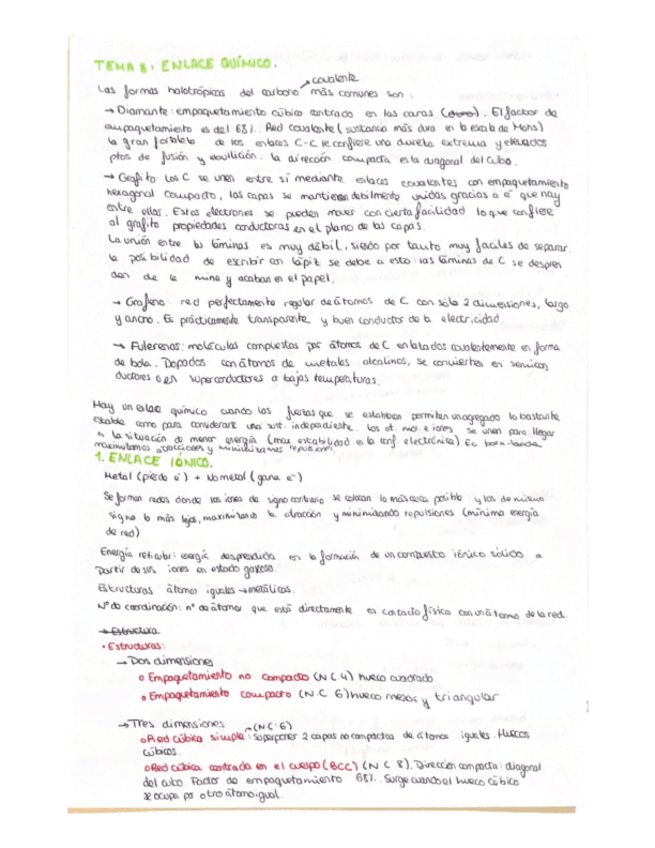 TEMA 8: ENLACE QUÍMICO.
covalente
Las formas halotrópicas del carbono más comunes son:
→ Diamante: empaquetamiento cúbico centrado en las caras. El factor de
empaquetamiento es del 68%. Red covalente (sustancia más dura en la escala de Mohs)
la gran fortaleza de los enlaces C-C le confiere una dureza extrema y elevados
ptos de fusión y ebullición. La dirección compacta es la diagonal del cubo.
→ Grafito: Los C se unen entre sí mediante enlaces covalentes con empaquetamiento
hexagonal compacto, las capas se mantienen debilmente unidas gracias a e⁻ que hay
entre ellas. Estos electrones se pueden mover con cierta facilidad lo que confiere
al grafito propiedades conductoras en el plano de las capas.
La unión entre las láminas es muy débil, siendo por tanto muy faciles de separar.
la posibilidad de escribir con lápiz se debe a esto: las láminas de C se despren
den de la mina y acaban en el papel.
→ Grafeno: red perfectamente regular de átomos de C con sólo 2 dimensiones, largo
y ancho. Es prácticamente transparente y buen conductor de la electricidad.
→ Fulerenos: moléculas compuestas por átomos de C enlazados covalentemente en forma
de bola. Dopados con átomos de metales alcalinos, se convierten en semicon
ductores o en superconductores a bajas temperaturas.
Hay un enlace químico cuando las fuerzas que se establecen permiten un agregado lo bastante
estable como para considerarse una sust. independiente. Los at. mol e iones se unen para llegar
a la situación de menor energía (max estabilidad o la conf. electrónica). Ec born-landé
maximizamos atracciones y minimizamos repulsiones.
1. ENLACE IÓNICO.
Metal (pierde e⁻) + No metal (gana e⁻)
Se forman redes donde los iones de signo contrario se colocan lo más cerca posible y los de mismo
signo lo más lejos, maximizando la atracción y minimizando repulsiones (mínima energía
de red)
Energía reticular: energía desprendida en la formación de un compuesto iónico sólido a
partir de sus iones en estado gaseoso.
Estructuras átomos iguales → metálicas.
Nº de coordinación: nº de átomos que está directamente en contacto físico con un átomo de la red.
→ Estructura
• Estructuras:
→ Dos dimensiones
o Empaquetamiento no compacto (N.C 4) hueco cuadrado
o Empaquetamiento compacto (N.C 6) hueco menor y triangular
→ Tres dimensiones
(N.C: 6)
o Red cúbica simple: superponer 2 capas no compactas de átomos iguales. Huecos
cúbicos.
o Red cúbica centrada en el cuerpo (BCC) (N.C 8). Dirección compacta: diagonal
del cubo. Factor de empaquetamiento 68%. Surge cuando el hueco cúbico
se ocupa por otro átomo igual.